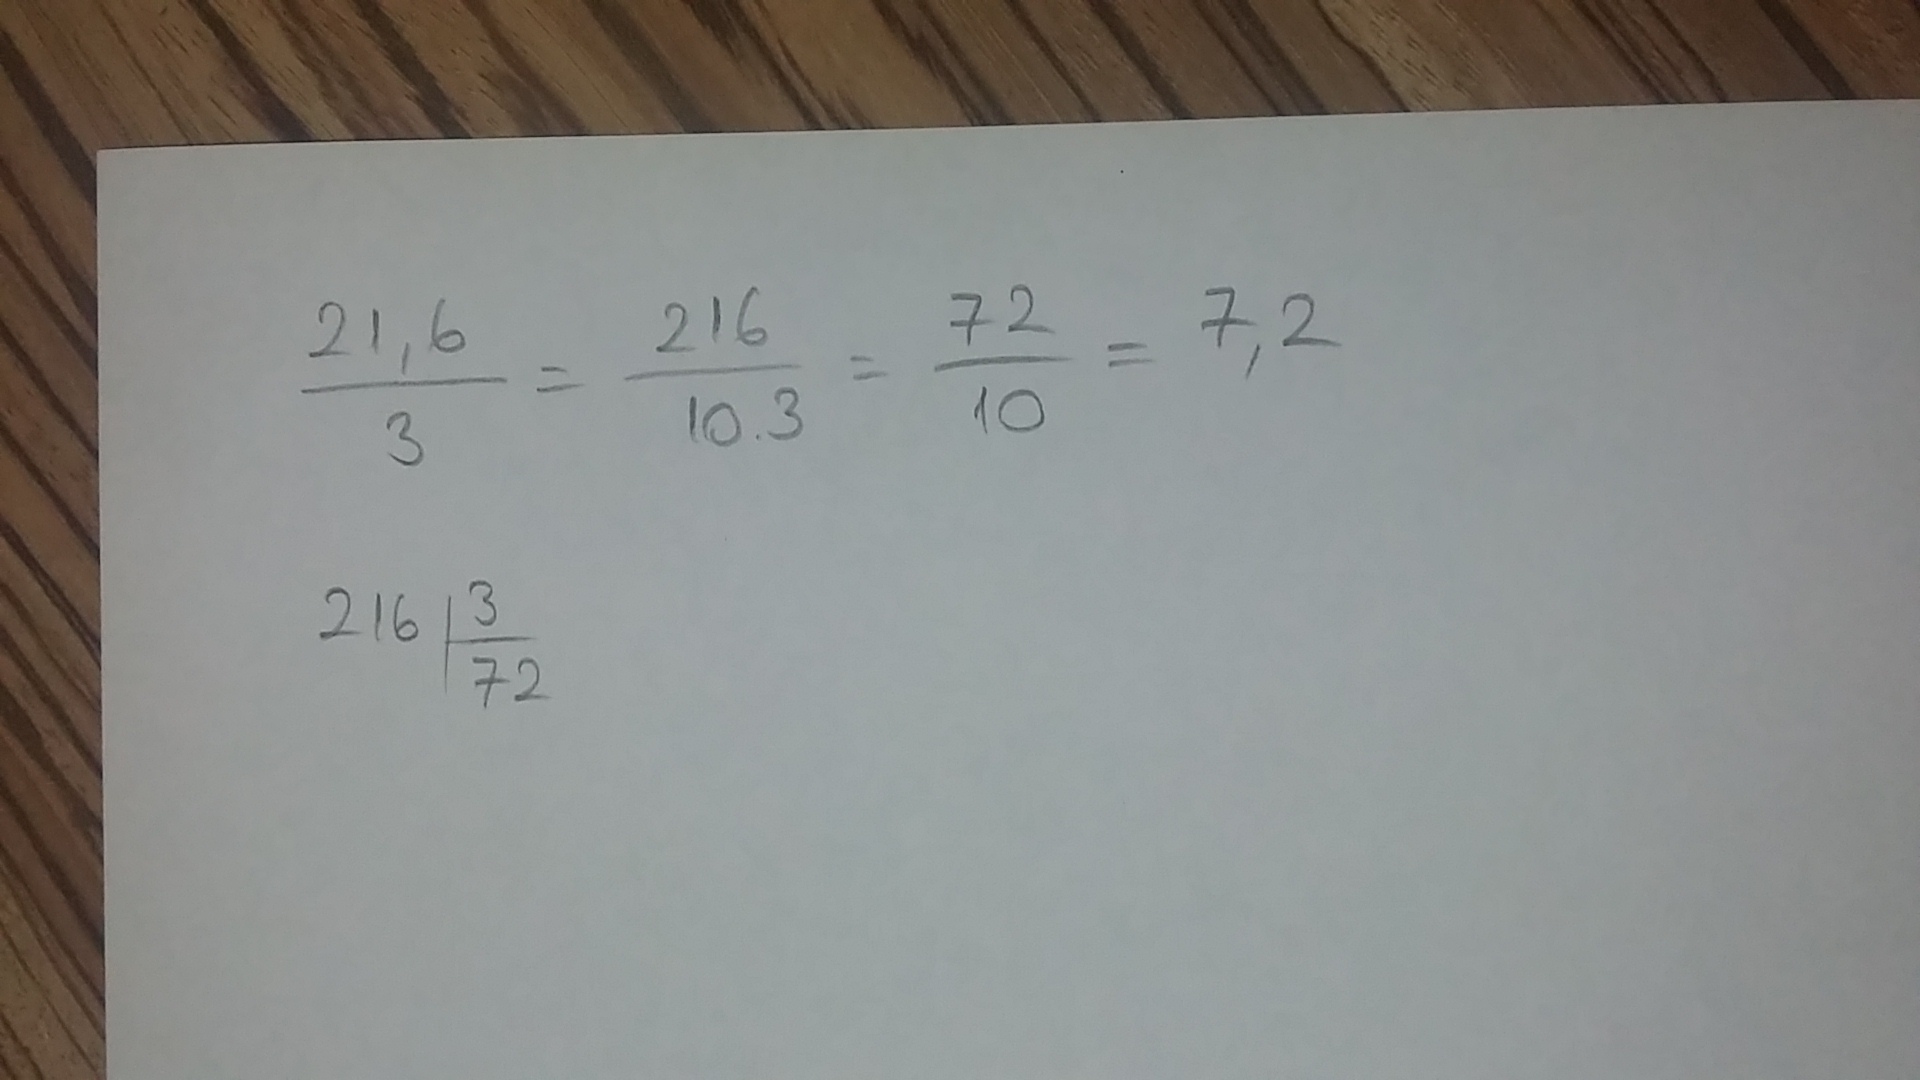 21,6/3 = 216/10.3 = 72/10 = 7,2
216 | 3
72